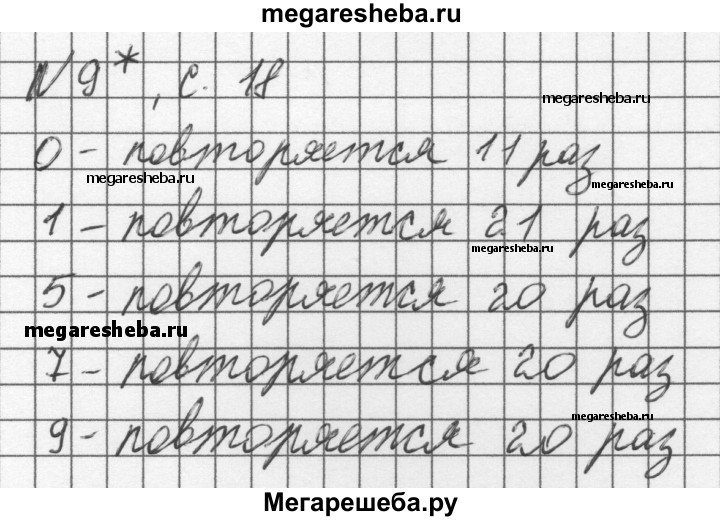 megaresheba.ru
№ 9*, с. 18
megaresheba.ru
0 - повторяется 11 раз
megaresheba.ru
megaresheba.ru
1 - повторяется 21 раз
megaresheba.ru
5 - повторяется 20 раз
megaresheba.ru
7 - повторяется 20 раз
megaresheba.ru
9 - повторяется 20 раз
Мегарешеба.ру